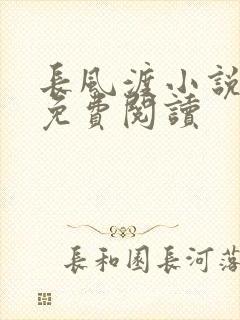 長風渡小説
免費閱讀
長和園長河落